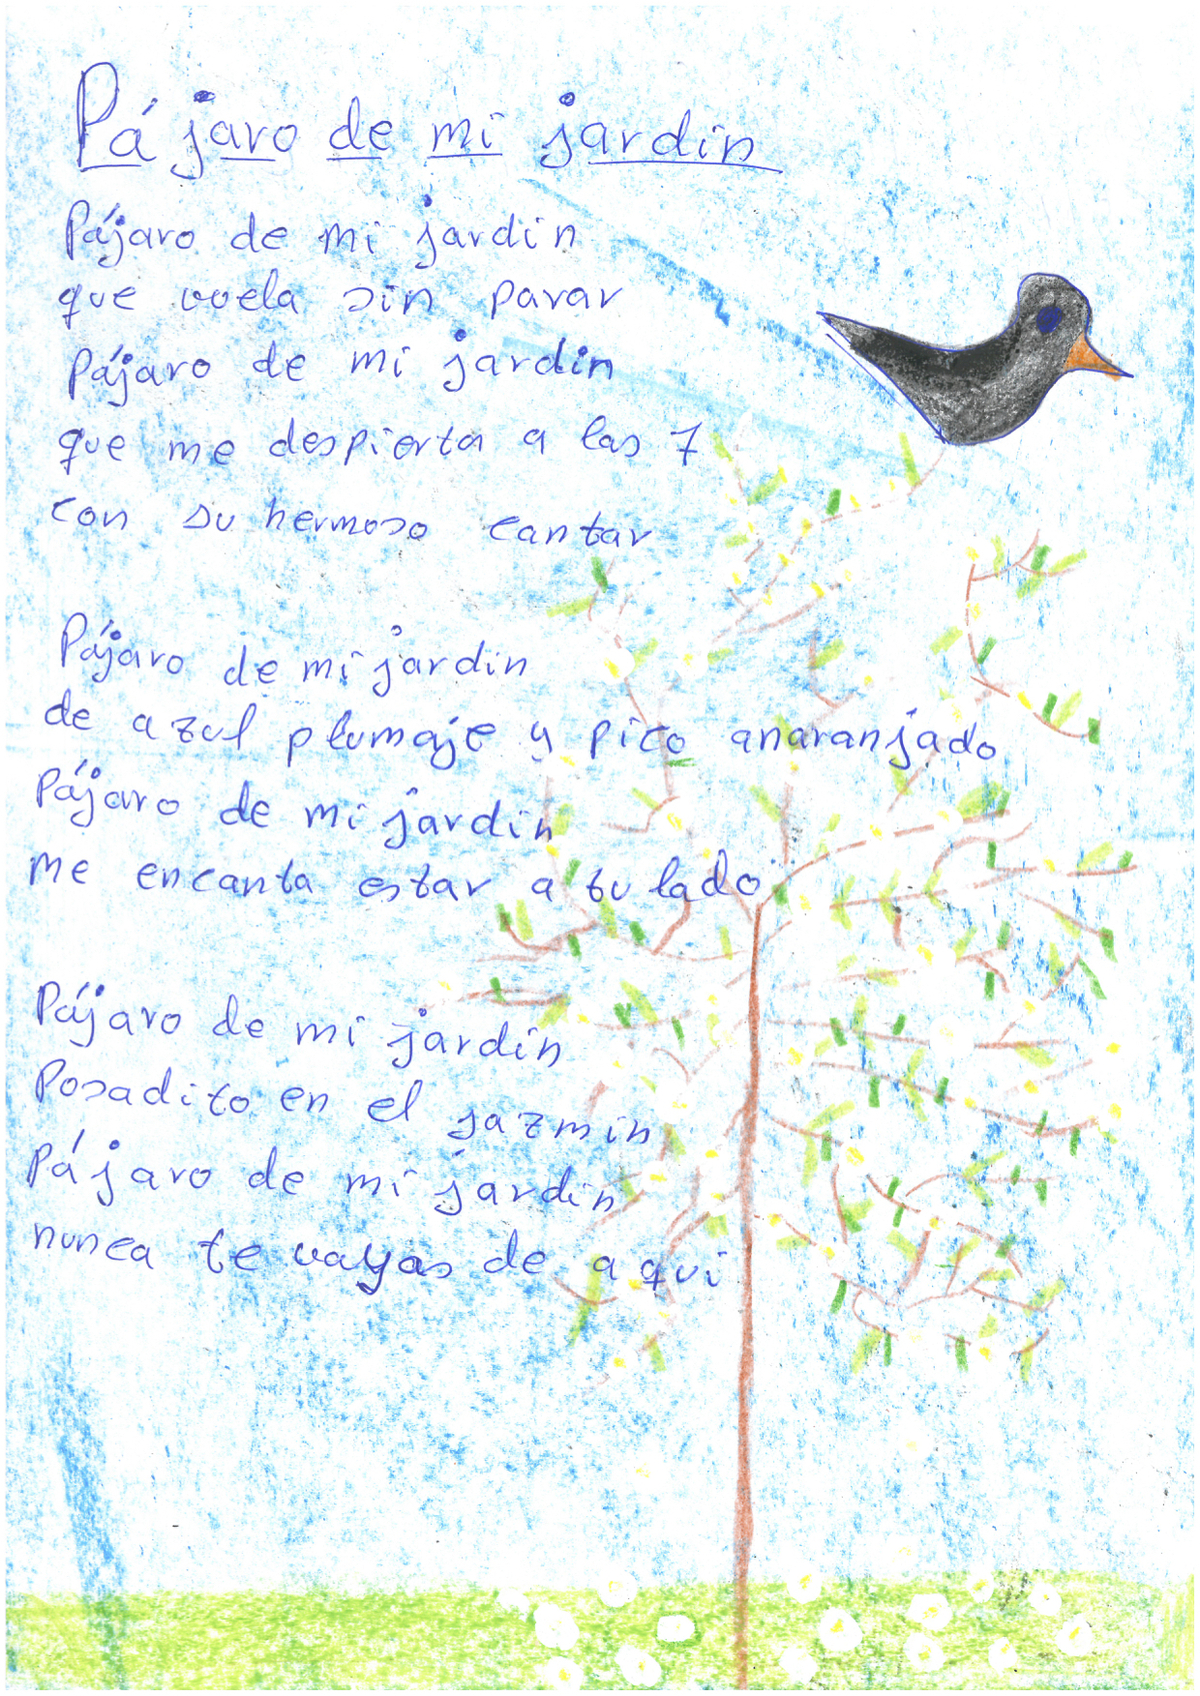 Pájaro de mi jardin
Pájaro de mi jardin
que vuela sin parar
Pájaro de mi jardin
que me despierta a las 7
con su hermoso cantar
Pájaro de mi jardin
de azul plumaje y pico anaranjado
Pájaro de mi jardin
me encanta estar a tu lado
Pájaro de mi jardin
Posadito en el jazmin
Pájaro de mi jardin
nunca te vayas de aqui